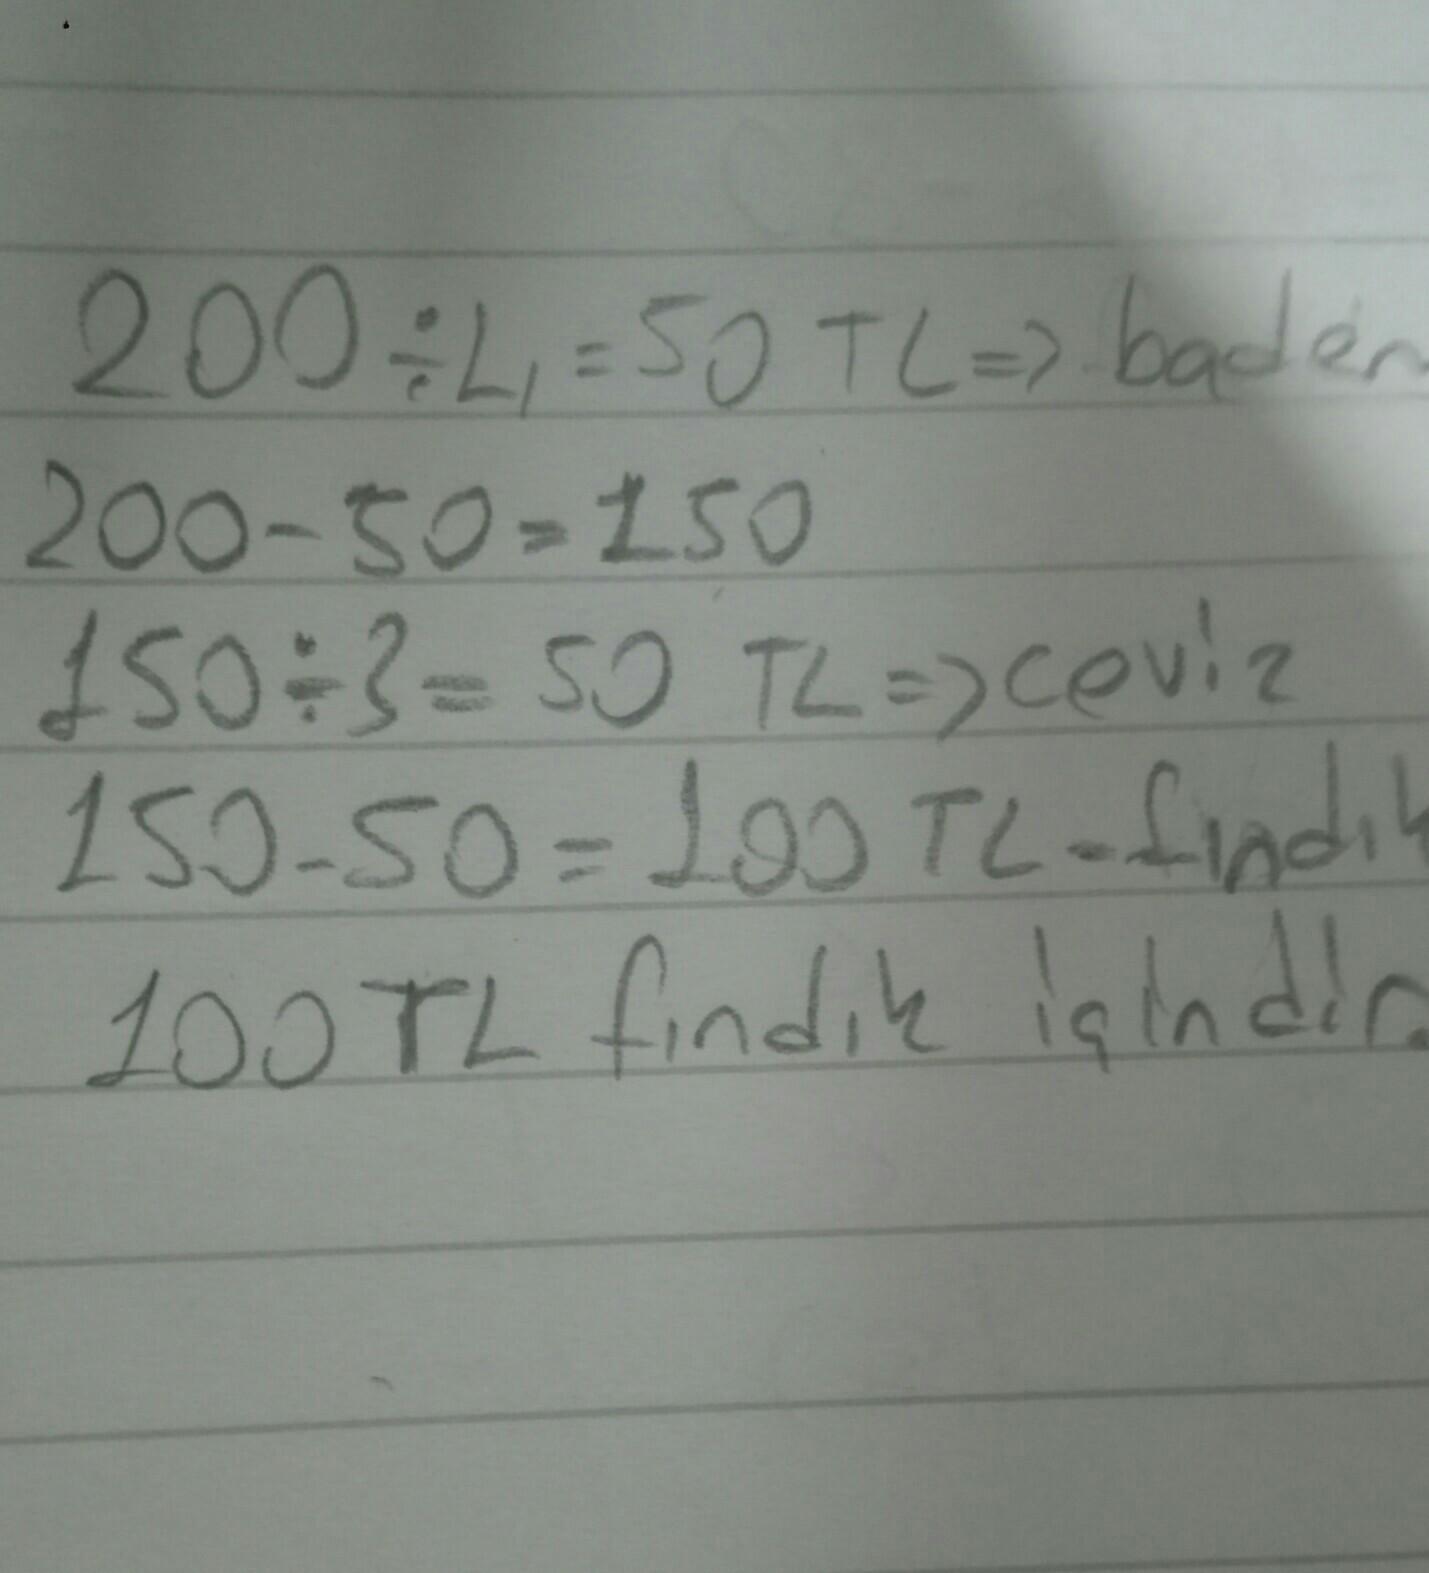 200÷4=50 TL=> badem
200-50=150
150÷3= 50 TL=>ceviz
150-50=100 TL-fındık
100 TL fındık içindir.